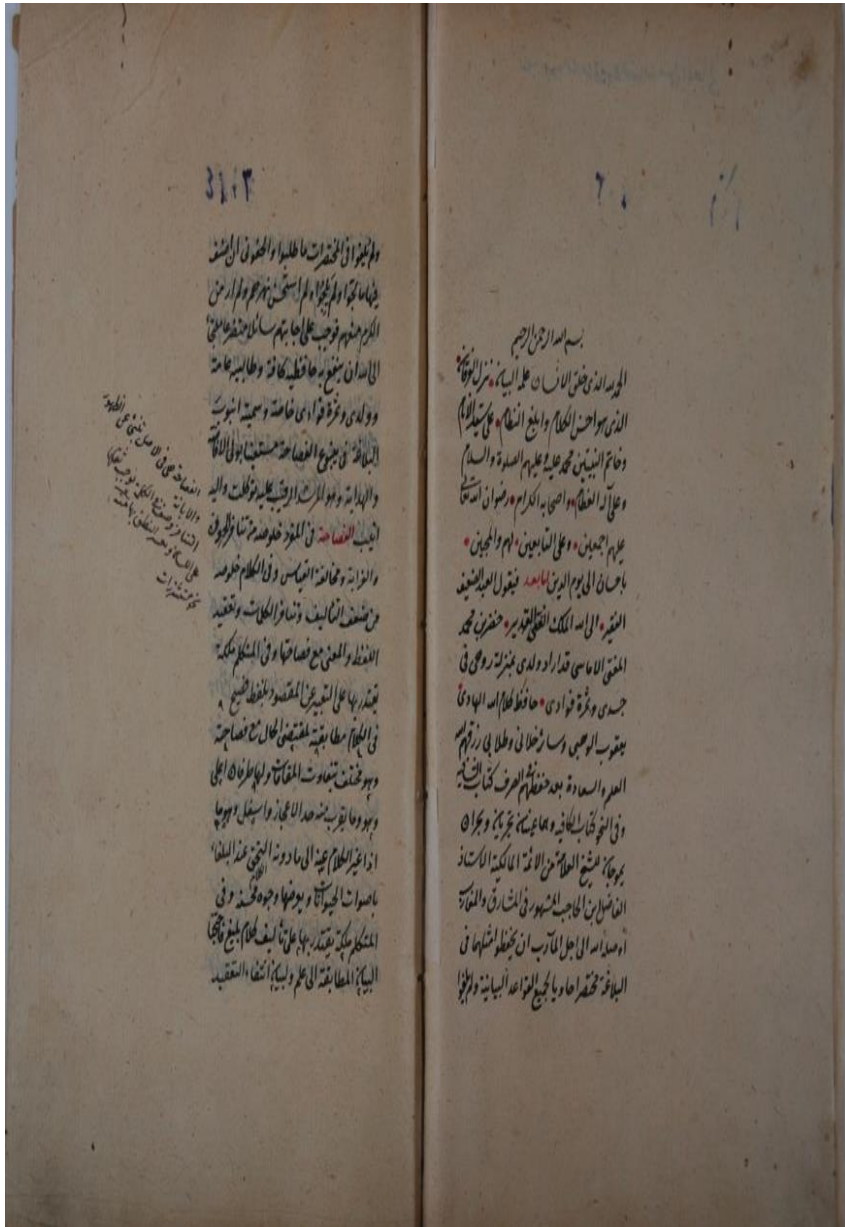 بسم الله الرحمن الرحيم
الحمد لله الذى خلق الانسان علمه البيان نزل الفرقان
الذى هو احسن الكلام وابلغ النظام على سيد الانام
وخاتم النبيين محمد عليه وعليهم الصلوة والسلام
وعلى آله العظام واصحابه الكرام رضوان الله تعالى
عليهم اجمعين وعلى التابعين لهم والمجيبين
باحسان الى يوم الدين اما بعد فيقول العبد الضعيف
الفقير الى الله الملك القدير خضر بن محمد
المفتى الاماسى قد اراد ولدى بمنزلة روحى فى
جسدى وثمرة فوادى حافظ كلام الله الهادى
يعقوب الوهبى وسائر خلانى وطلابى رزقهم الله
العلم والسعادة بعد حفظهم الصرف كتاب الشافيه
وفى النحو كتاب الكافيه وهما عينان تجريان وبحران
للشيخ العلامة من الائمة المالكية الاستاذ
الفاضل ابن الحاجب المشهور فى المشارق والمغارب
اوصله الله الى اجل المآرب ان يحفظوا مثلهما فى
البلاغة مختصرا حاويا لجميع القواعد البيانية ولم
ولم يلقوا فى المختصرات ما طلبوا والحقونى ان اصنف
ولم استحسن نهرهم ولم ار من
الكرم منعهم فوجب على اجابتهم سائلا
الى الله ان ينفع به حافظيه كافة وطالبيه عامة
وولدى وثمرة فوادى خاصة وسميته انبوب
البلاغة فى ينبوع الفصاحة مستعينا بولى الافاضة
والهداية وهو المرشد الرقيب عليه توكلت واليه
انيب الفصاحة فى المفرد خلوصه من تنافر الحروف
والغرابة ومخالفة القياس وفى الكلام خلوصه
من ضعف التاليف وتنافر الكلمات وتعقيد
اللفظ والمعنى مع فصاحتها وفى المتكلم ملكة
يقتدر بها على التعبير عن المقصود بلفظ فصيح
فى الكلام مطابقته لمقتضى الحال مع فصاحته
وهو مختلف بتفاوت المقامات ولها طرفان اعلى
وهو وما يقرب منه حد الاعجاز واسفل وهو ما
اذا غير الكلام عنه الى ما دونه التحق عند البلغاء
باصوات الحيوانات ويعرضها وجوه محسنة وفى
المتكلم ملكة يقتدر بها على تاليف كلام بليغ
البيان المطابقة الى علم ولبيان انتفاء التعقيد
الفصاحة هى فى الاصل تنبئ عن الظهور
والابانة